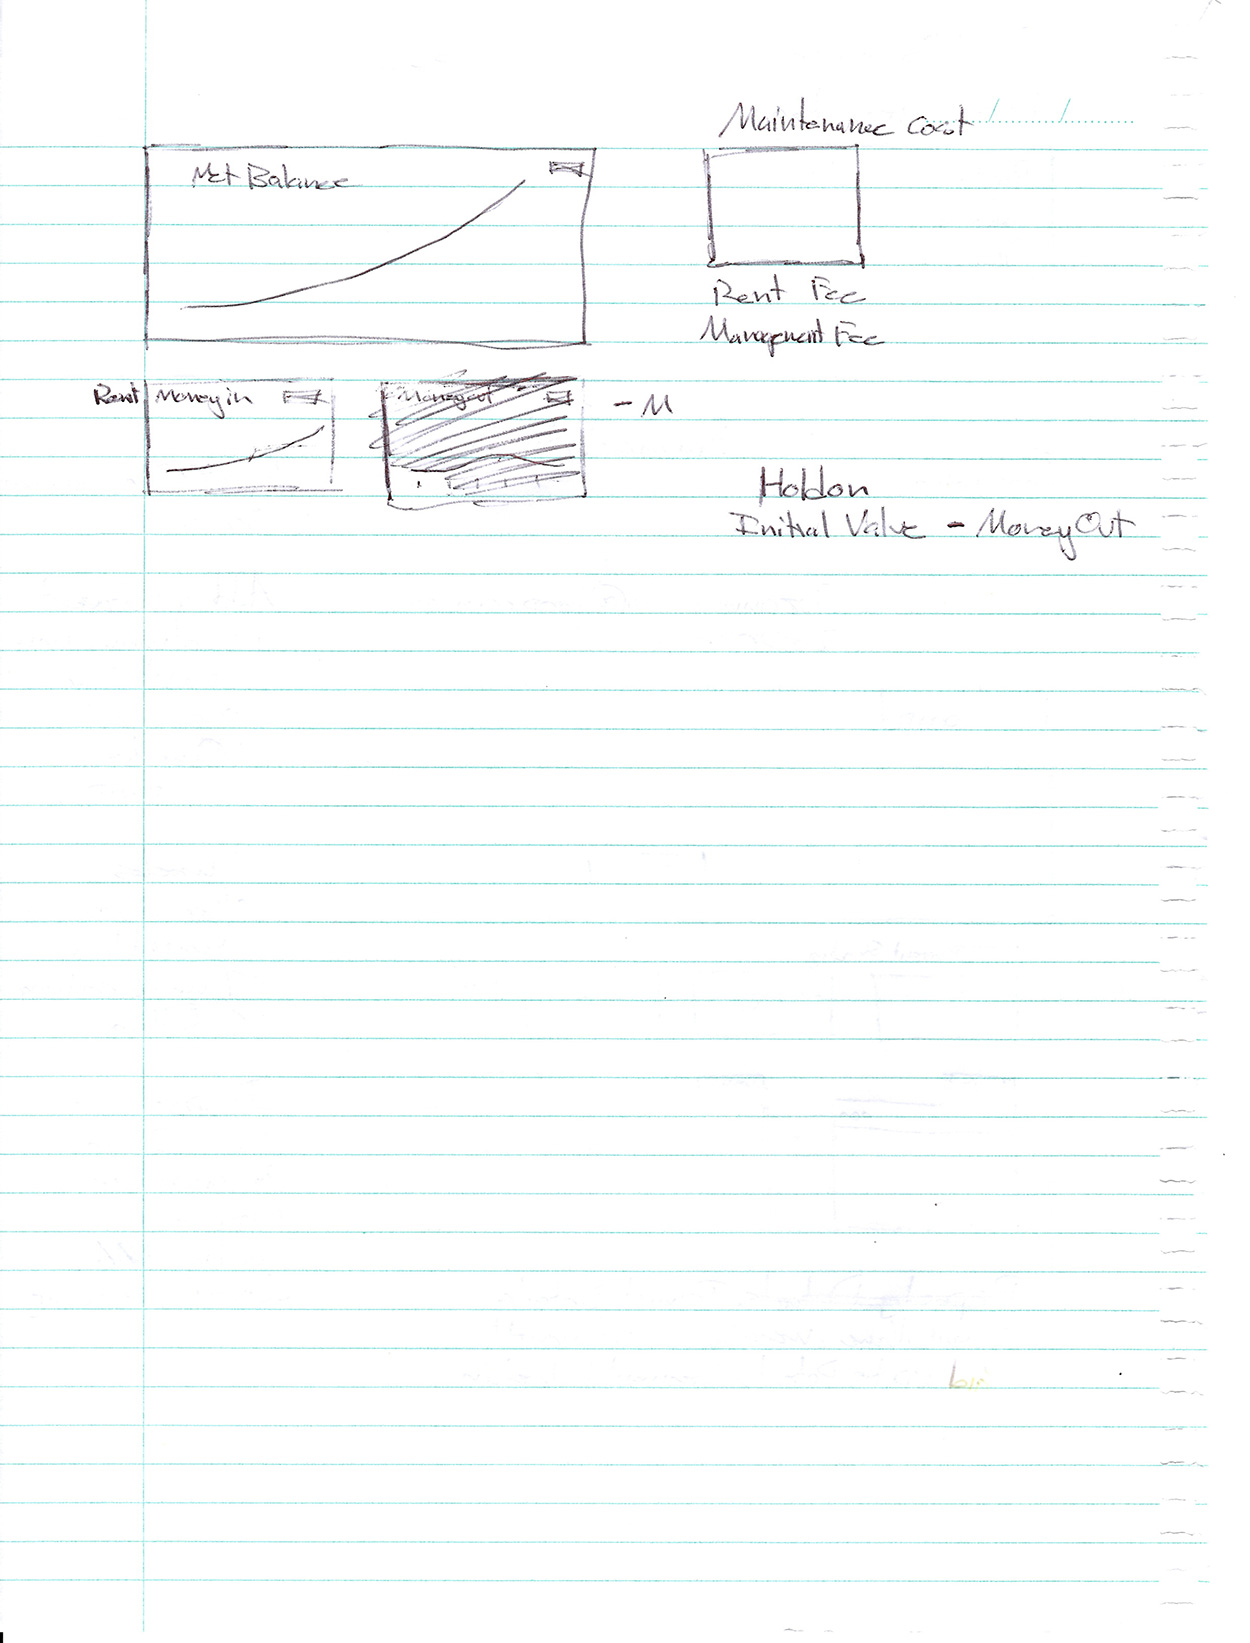 Maintenance Cost
Net Balance
Rent Fee
Management Fee
Rent Money in
Money out
- M
Holdon
Initial Value - Money Out